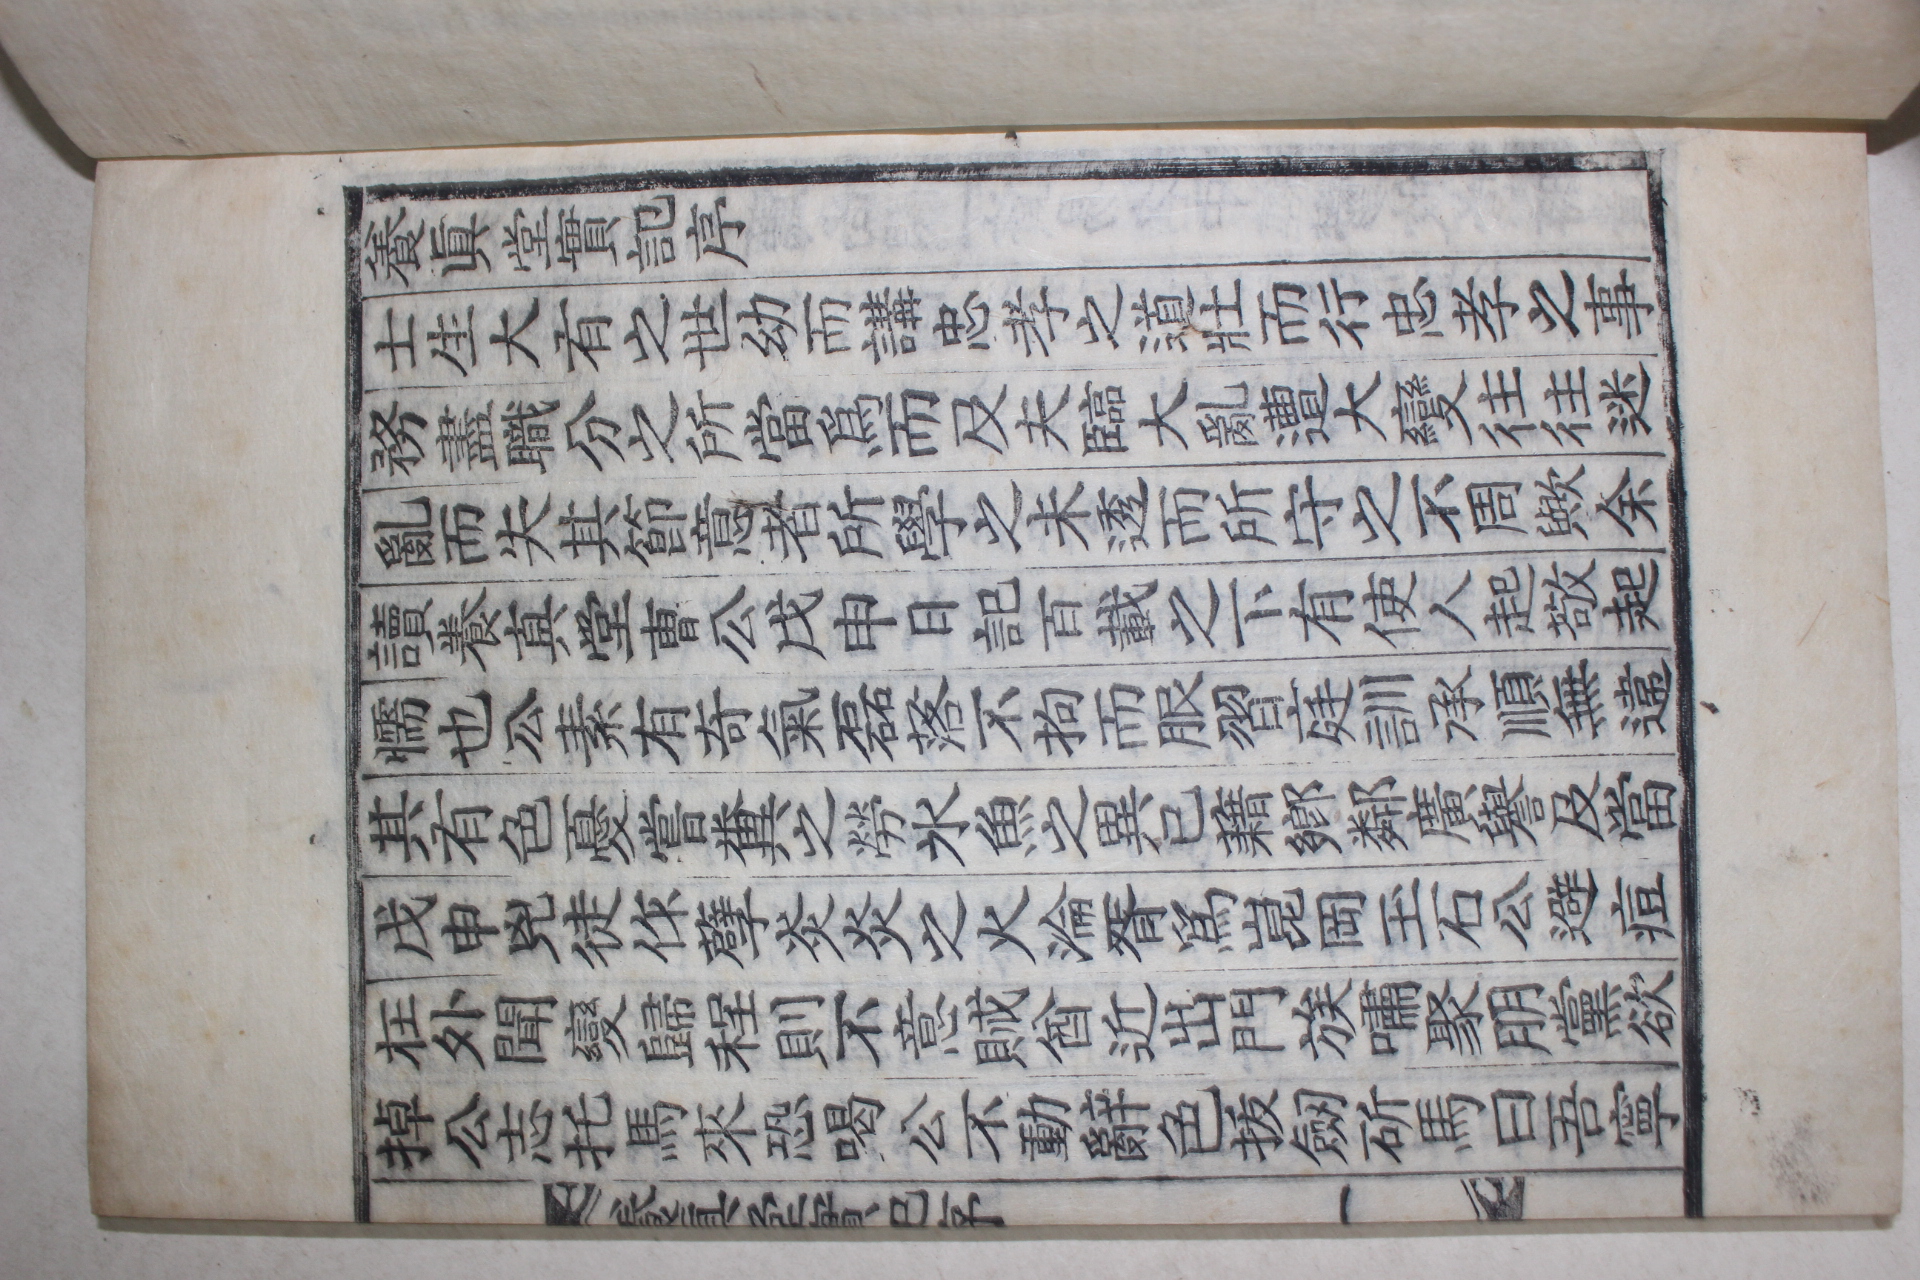 養眞堂實記序
士生大有之世幼而講忠孝之道壯而行忠孝之事
務盡職分之所當爲而及夫臨大亂遭大變往往迷
亂而失其節意者所學之未透而所守之不周歟余
讀養眞堂曺公戊申日記百載之下有使人起敬起
懦也公素有奇氣磊落不拘而服習庭訓承順無違
其有色憂嘗糞之勞氷魚之異已藉鄕鄰廣譽及當
戊申兇徒作孽炎炎之火淪胥爲崑岡玉石公避痘
在外聞變歸程則不意賊酋近出門族嘯聚朋黨欲
掉公志托馬來恐喝公不動辭色拔劒斫馬曰吾寧
養眞堂實記序 一